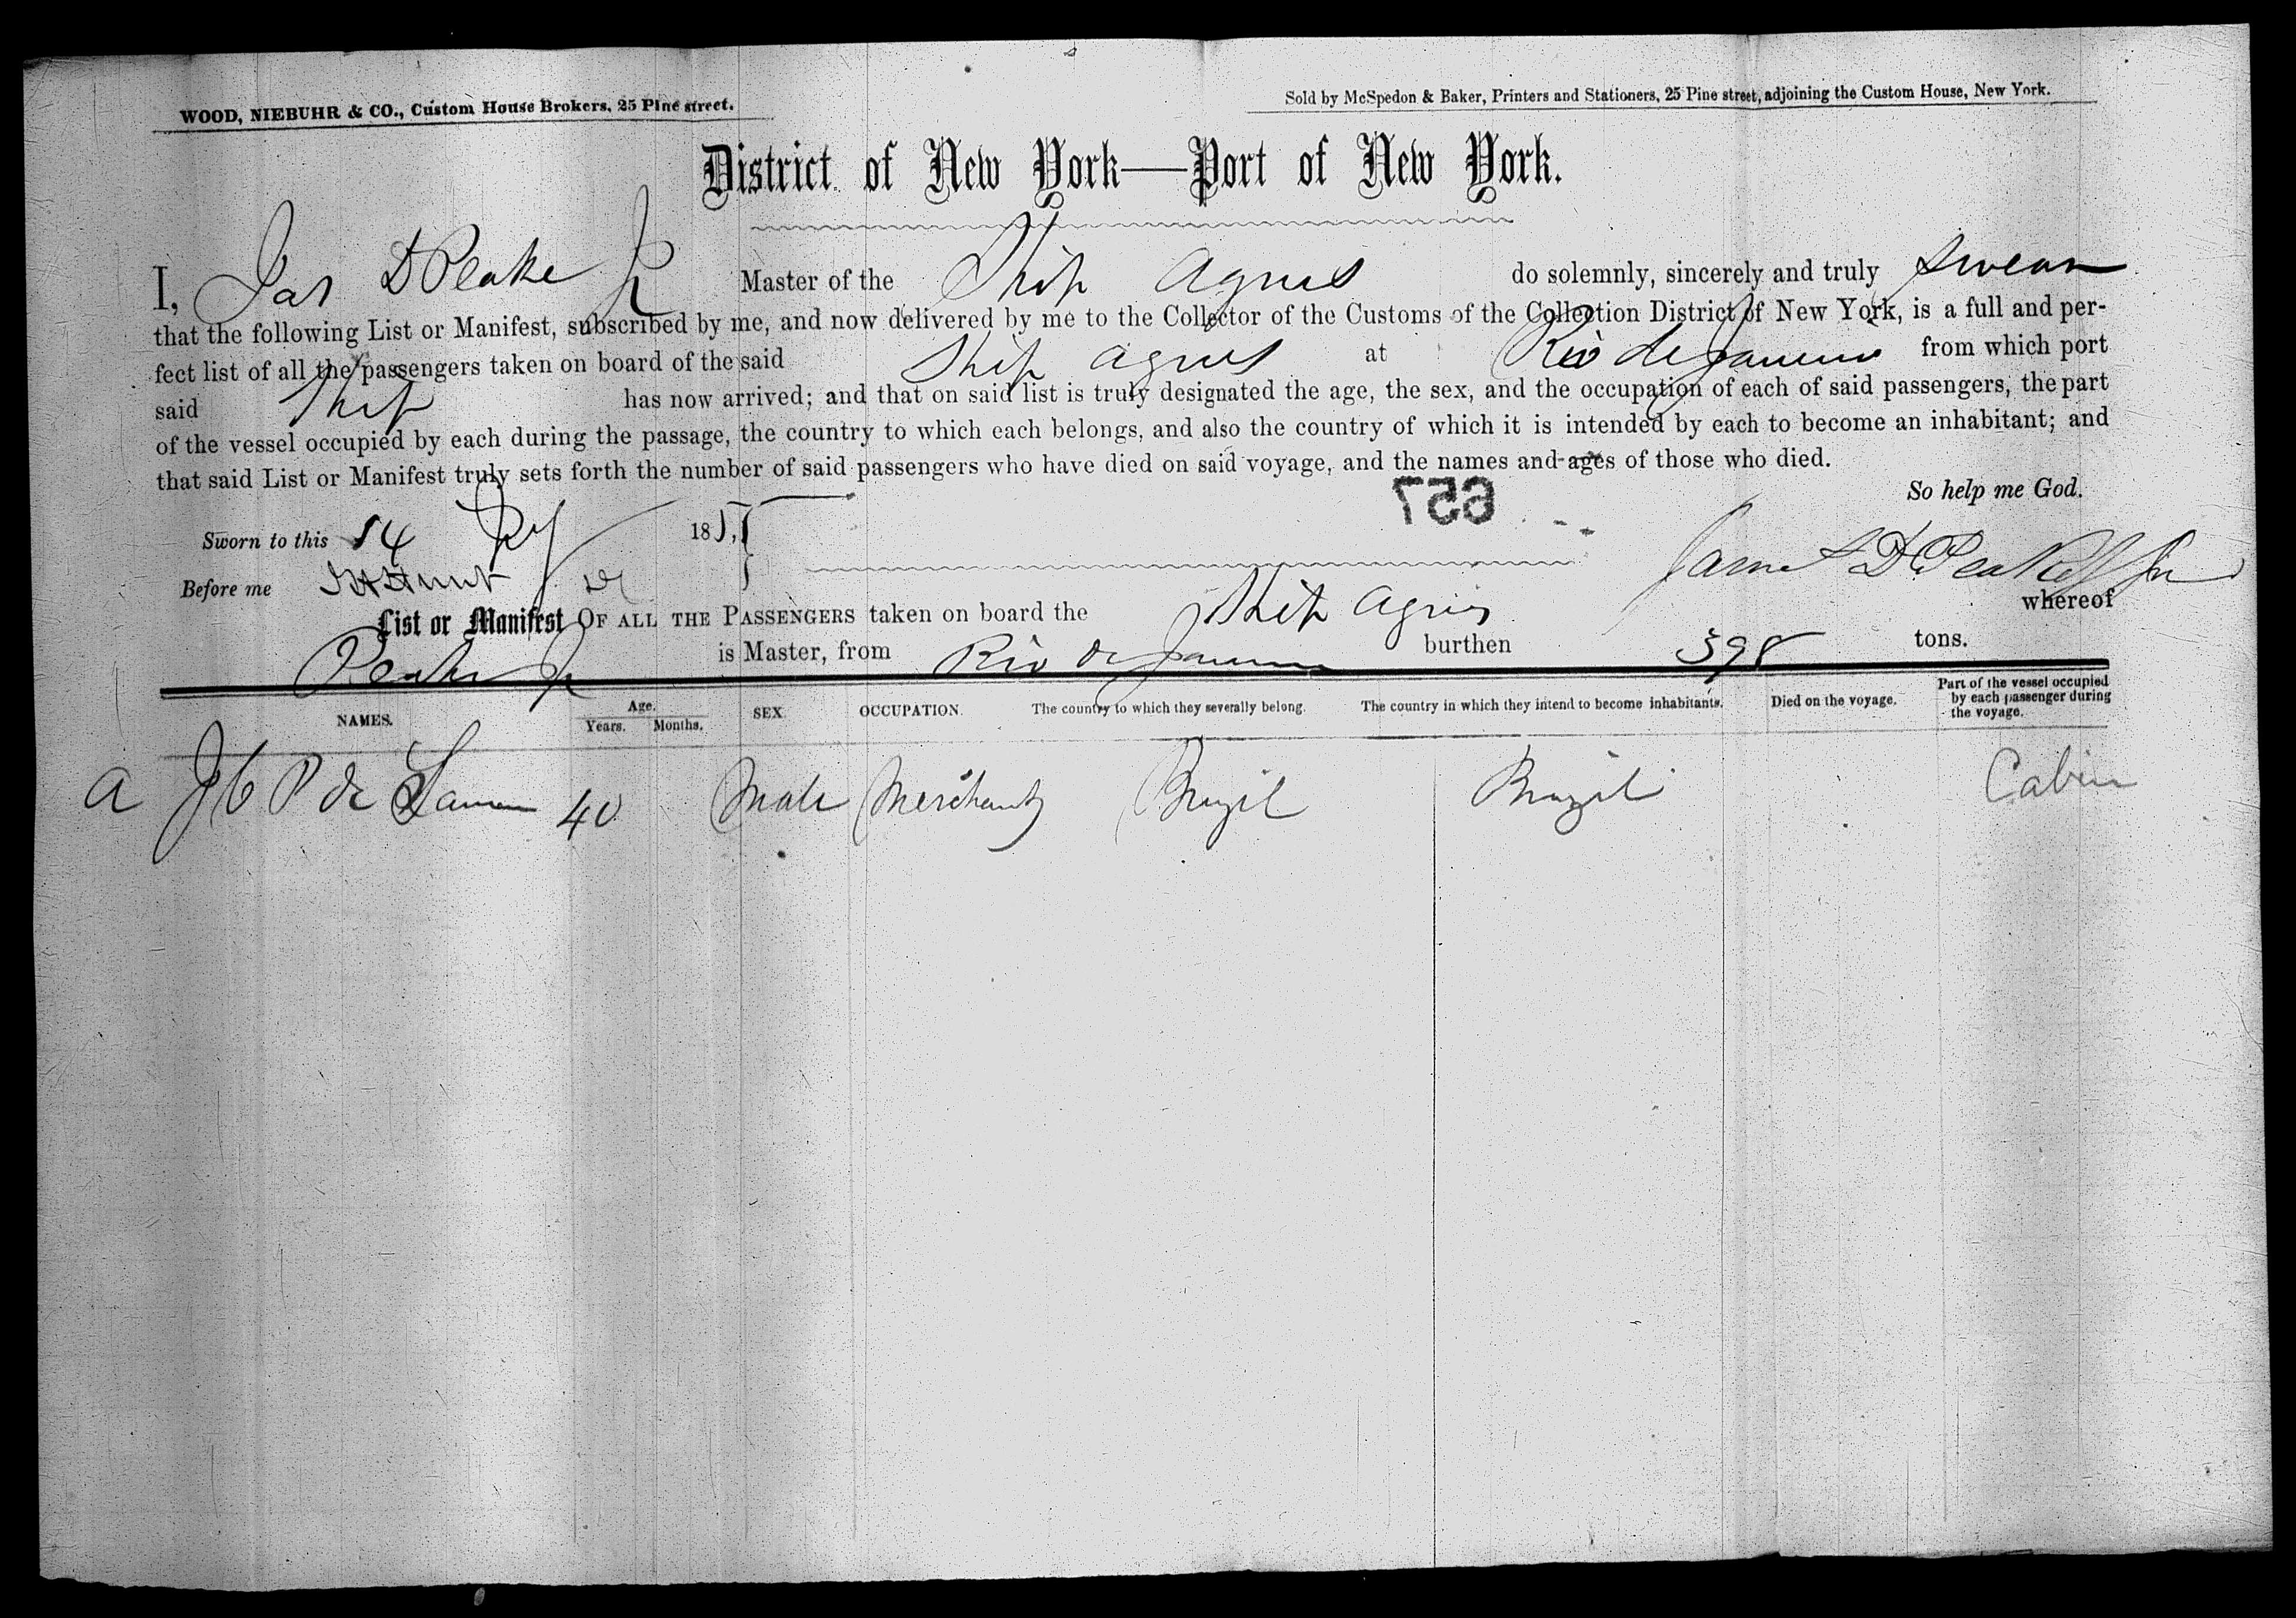 WOOD, NIEBUHR & CO., Custom House Brokers, 25 Pine street.
Sold by McSpedon & Baker, Printers and Stationers, 25 Pine street, adjoining the Custom House, New York.
District of New York—Port of New York.
I, Jas D Peake Jr Master of the Ship Agnes do solemnly, sincerely and truly swear
that the following List or Manifest, subscribed by me, and now delivered by me to the Collector of the Customs of the Collection District of New York, is a full and per-
fect list of all the passengers taken on board of the said Ship Agnes at Rio de Janeiro from which port
said Ship has now arrived; and that on said list is truly designated the age, the sex, and the occupation of each of said passengers, the part
of the vessel occupied by each during the passage, the country to which each belongs, and also the country of which it is intended by each to become an inhabitant; and
that said List or Manifest truly sets forth the number of said passengers who have died on said voyage, and the names and ages of those who died.
657
So help me God.
Sworn to this 14 185
James D Peake Jr
Before me
List or Manifest OF ALL THE PASSENGERS taken on board the Ship Agnes whereof
Peake Jr is Master, from Rio de Janeiro burthen 398 tons.
NAMES. Age. Years. Months. SEX. OCCUPATION. The country to which they severally belong. The country in which they intend to become inhabitants. Died on the voyage. Part of the vessel occupied by each passenger during the voyage.
a J C P de 40 Male Merchant Brazil Brazil Cabin